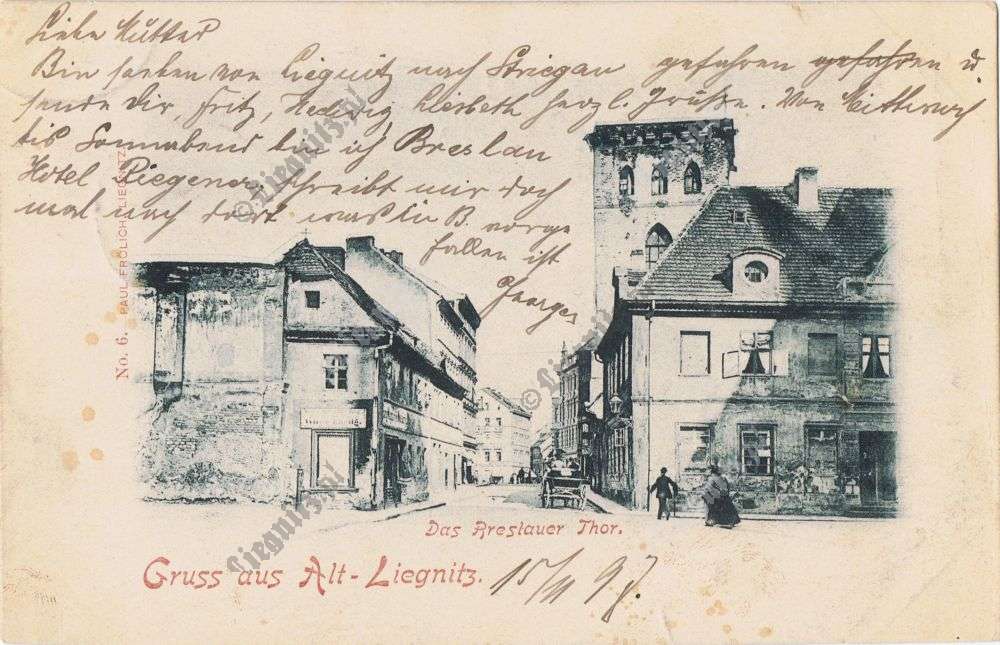 Liebe Mutter
Bin soeben von Liegnitz nach Striegau gefahren gefahren u.
sende Dir, Fritz, Hedwig, Liesbeth herzl. Grüße. Von Mittwoch
bis Sonnabend bin ich Breslau
Hotel schreibt mir doch
mal nach dort was in B. vorge
fallen ist
No. 6. PAUL FRÖLICH, LIEGNITZ
Das Breslauer Thor.
Gruss aus Alt-Liegnitz.
© Liegnitz.pl
© Liegnitz.pl
Liegnitz.pl